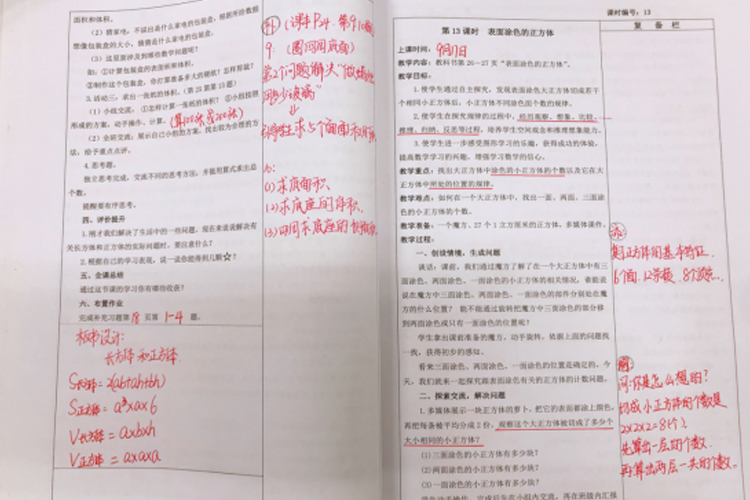 面积和体积。
(2)猜家电,不误出是什么家电的包装盒,根据所给数据
想像包装盒的大小,猜猜是什么家电的包装盒。
(3)这里面涉及到哪些数学问题呢?
如:①计算包装盒的表面积和体积。
②制作这个包装盒,你打算准备多大的硬纸?怎样剪裁?
3.活动三,求出一张纸的体积。(第25页第13题)
(1)小组交流,①怎样计算一张纸的体积?②小组按照
形成的方案,动手操作、计算。
(2)全班交流,展示自己小组的方案,找出较为合理的方
法,给予重点点评。
4.思考题。
独立思考完成,交流不同的思考方法,并能用算式求出总
个数。
提醒要有序思考。
四、评价提升
1.刚才我们解决了生活中的一些问题,现在来说说解决有
关长方体和正方体的实际问题时,要注意什么?
2.根据自己的学习表现,说一说你能得到几颗☆?
五、全课总结
通过这节课的学习你有哪些收获?
六、布置作业
完成补充习题第18页第1-4题。
板书设计:
长方体和正方体
S长方体=2(ab+ah+bh)
S正方体=a×a×6
V长方体=a×b×h
V正方体=a×a×a
(课本P24.第9题)
9.
第2个问题解决"做
多少玻璃"
⇓
求5个面面积
为:
(1)求底面积
(2)求底座的体积
(3)四周求底座的
课时编号:13
复备栏
第13课时 表面涂色的正方体
上课时间:9月11日
教学内容:教科书第26~27页"表面涂色的正方体"。
教学目标:
1.使学生通过自主探究,发现表面涂色大正方体切成若干
个相同小正方体后,小正方体不同涂色面个数的规律。
2.使学生在探究规律的过程中,经历观察、想象、比较、
推理、归纳、反思等过程,培养学生空间观念和推理想象能力。
3.使学生进一步感受图形学习的乐趣,获得成功的体验,
提高数学学习的兴趣,增强学习数学的信心。
教学重点:找出大正方体中涂色的小正方体的个数以及它在
大正方体中所处的位置的规律。
教学难点:如何在一个大正方体中,找出一面、两面、三面
涂色的小正方体的个数。
教学准备:一个魔方、27个1立方厘米的正方体、多媒体课件。
教学过程:
一、创设情境,生成问题
谈话:课前,我们通过魔方了解了在一个大正方体中有三
面涂色、两面涂色、一面涂色的小正方体的相关情况,谁能说
说在魔方中三面涂色、两面涂色、一面涂色的部分分别处在魔
方的什么位置? 能不能通过旋转把魔方中三面涂色的部分移
到两面涂色或只有一面涂色的位置呢?
学生拿出课前准备的魔方,动手旋转,依据上面的问题找
一找,获得初步的感知。
看来三面涂色、两面涂色、一面涂色的位置是确定的,今
天,我们就来一起探究跟表面涂色有关的正方体的计数问题。
二、探索交流,解决问题
1.多媒体展示一块正方体的萝卜,把它的表面都涂上颜色,
再把每条棱平均分成2份,观察这个大正方体被切成了多少个
大小相同的小正方体?
(1)三面涂色的小正方体有多少块?
(2)两面涂色的小正方体有多少块?
(3)一面涂色的小正方体有多少块?
添
正方体的基本特征
6个面.12条棱.8个顶点.
问:你是怎么想的?
切成小正方体的个数是
2×2×2=8(个)
先算出一层的个数.
再算出两层一共的个数.